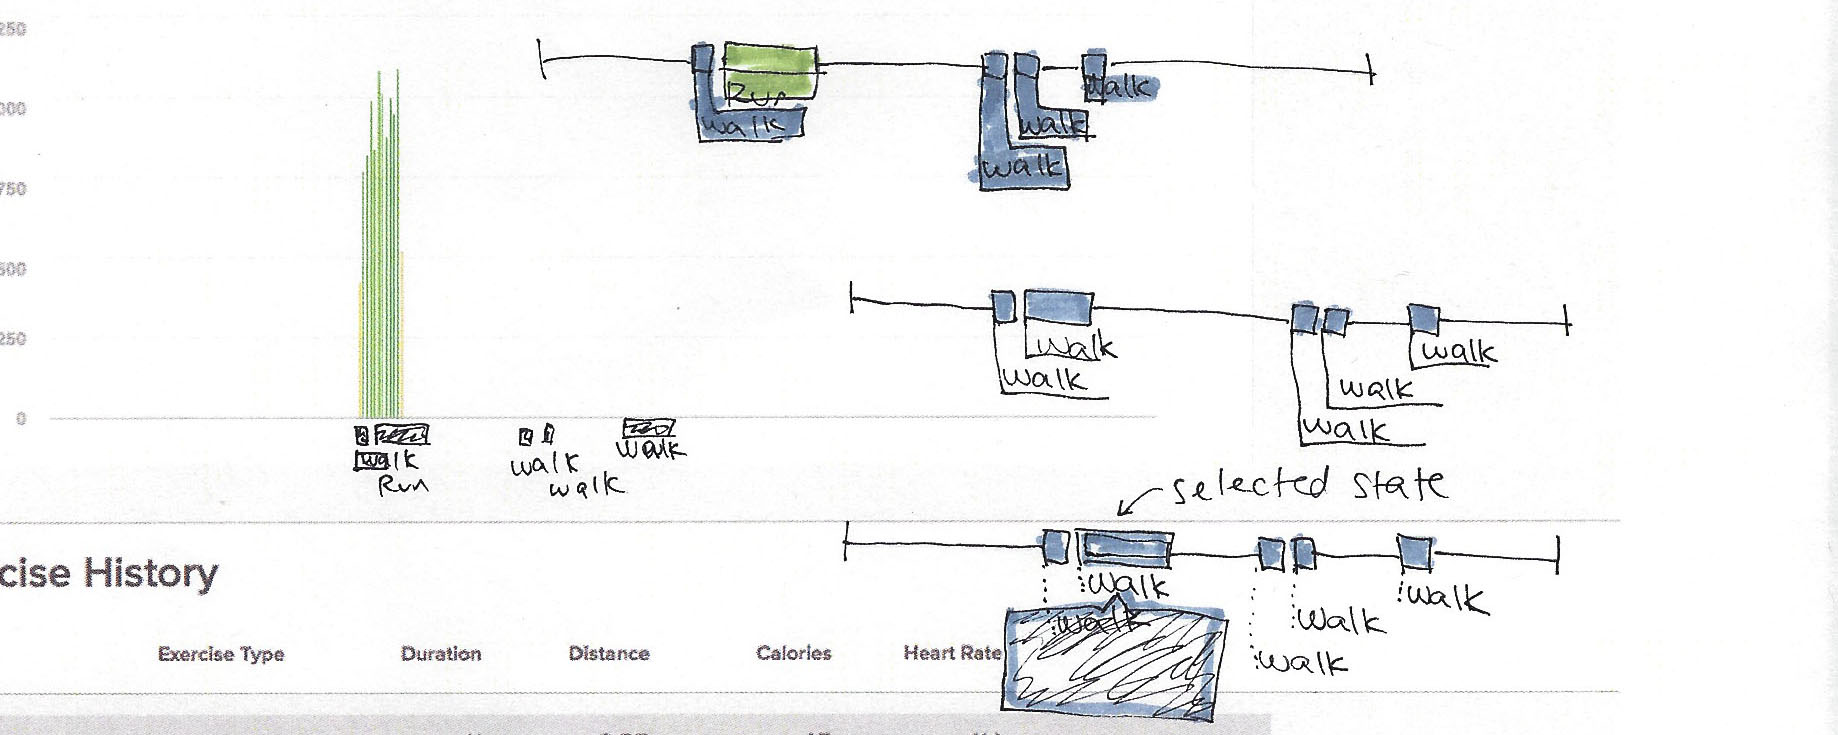 250
Run
walk
walk
walk
walk
000
750
500
250
0
walk
walk
walk
walk
walk
walk
Run
walk
walk
walk
selected state
walk
walk
walk
walk
walk
cise History
Exercise Type Duration Distance Calories Heart Rate